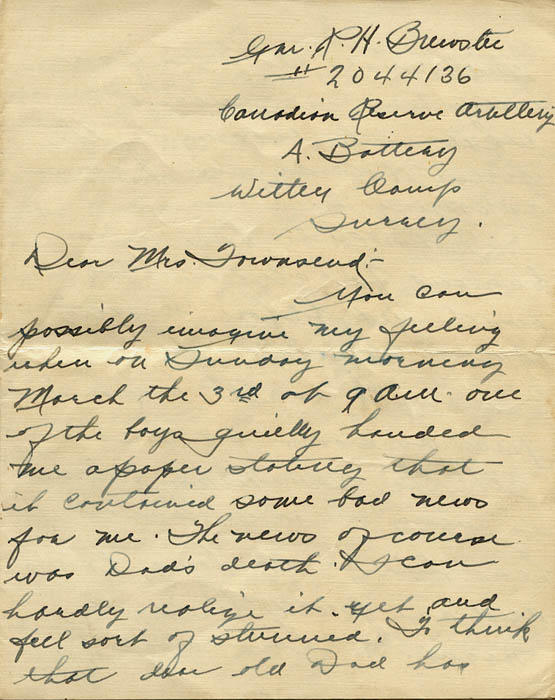 Gnr. R. H. Brewster
# 2044136
Canadian Reserve Artillery
A. Battery
Witley Camp
Surrey.
Dear Mrs. Townsend:-
You can
possibly imagine my feeling
when on Sunday morning
March the 3rd at 9 a.m. one
of the boys quietly handed
me a paper stating that
it contained some bad news
for me. The news of course
was Dad's death. I can
hardly realize it yet and
feel sort of stunned. To think
that dear old Dad has